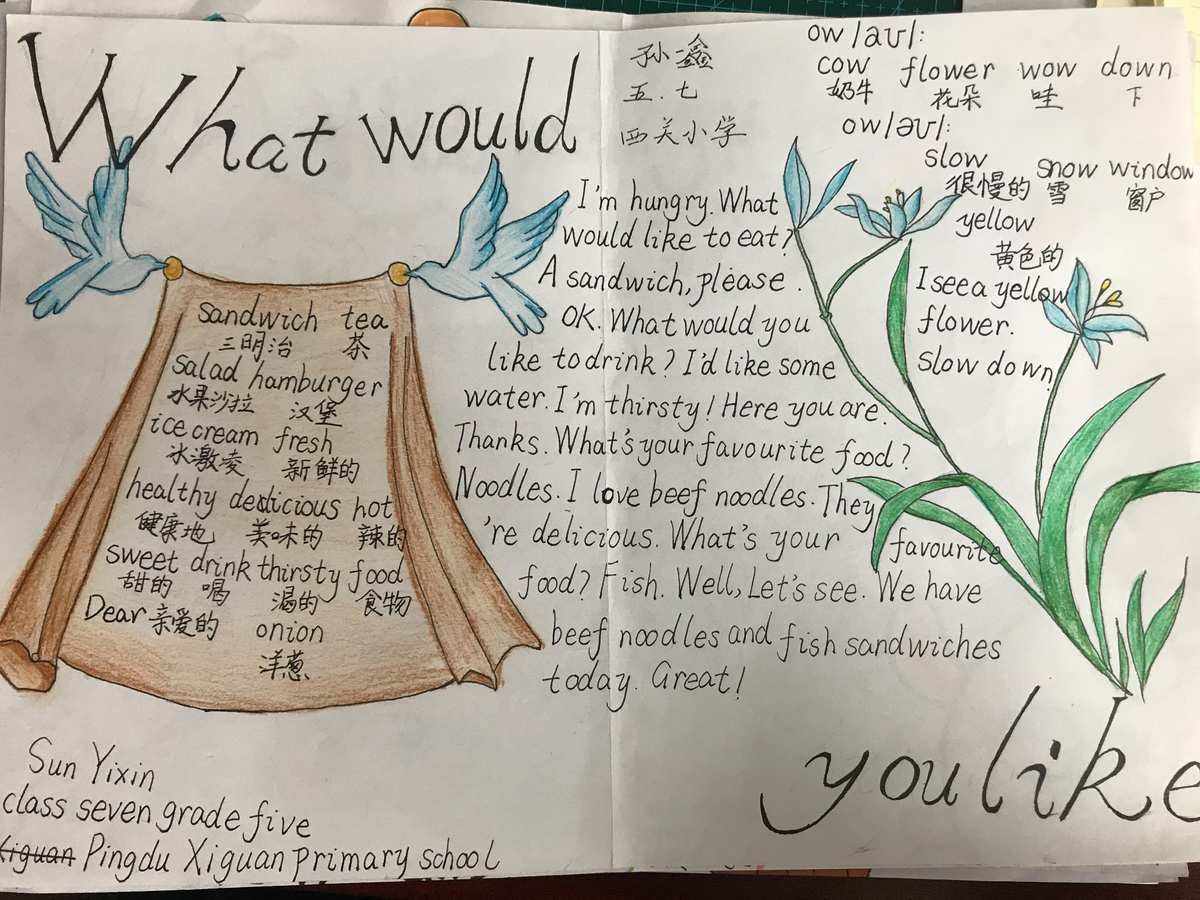 What would
孙一鑫
五.七
西关小学
ow/aʊ/:
cow flower wow down
奶牛 花朵 哇 下
ow/əʊ/:
slow snow window
很慢的 雪 窗户
yellow
黄色的
I see a yellow
flower.
slow down
sandwich tea
三明治 茶
salad hamburger
水果沙拉 汉堡
ice cream fresh
冰激凌 新鲜的
healthy delicious hot
健康地 美味的 辣的
sweet drink thirsty food
甜的 喝 渴的 食物
Dear 亲爱的 onion
洋葱
I'm hungry. What
would like to eat?
A sandwich, please.
OK. What would you
like to drink? I'd like some
water. I'm thirsty! Here you are.
Thanks. What's your favourite food?
Noodles. I love beef noodles. They
're delicious. What's your favourite
food? Fish. Well, Let's see. We have
beef noodles and fish sandwiches
today. Great!
you like
Sun Yixin
class seven grade five
Xiguan Pingdu Xiguan primary school